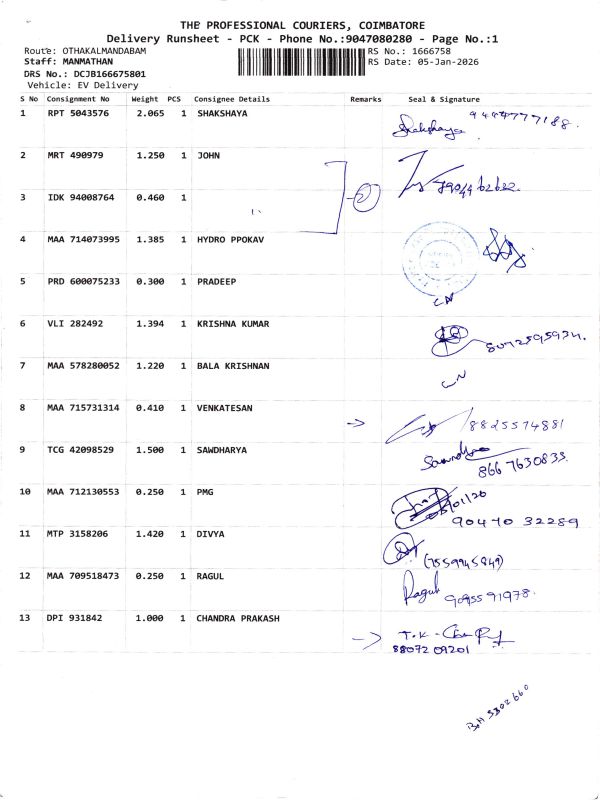 THE PROFESSIONAL COURIERS, COIMBATORE
Delivery Runsheet - PCK - Phone No.:9047080280 - Page No.:1
Route: OTHAKALMANDABAM RS No.: 1666758
Staff: MANMATHAN RS Date: 05-Jan-2026
DRS No.: DCJB166675801
Vehicle: EV Delivery
S No Consignment No Weight PCS Consignee Details Remarks Seal & Signature
1 RPT 5043576 2.065 1 SHAKSHAYA Shakshaya 9444777188.
2 MRT 490979 1.250 1 JOHN
3 IDK 94008764 0.460 1 2
4 MAA 714073995 1.385 1 HYDRO PPOKAV
5 PRD 600075233 0.300 1 PRADEEP CN
6 VLI 282492 1.394 1 KRISHNA KUMAR 8072595934.
7 MAA 578280052 1.220 1 BALA KRISHNAN CN
8 MAA 715731314 0.410 1 VENKATESAN → 8825574881
9 TCG 42098529 1.500 1 SAWDHARYA
8667630833.
10 MAA 712130553 0.250 1 PMG
90470 32289
11 MTP 3158206 1.420 1 DIVYA (7559945849)
12 MAA 709518473 0.250 1 RAGUL Ragul 9095591978.
13 DPI 931842 1.000 1 CHANDRA PRAKASH → T.K-
88072 09201